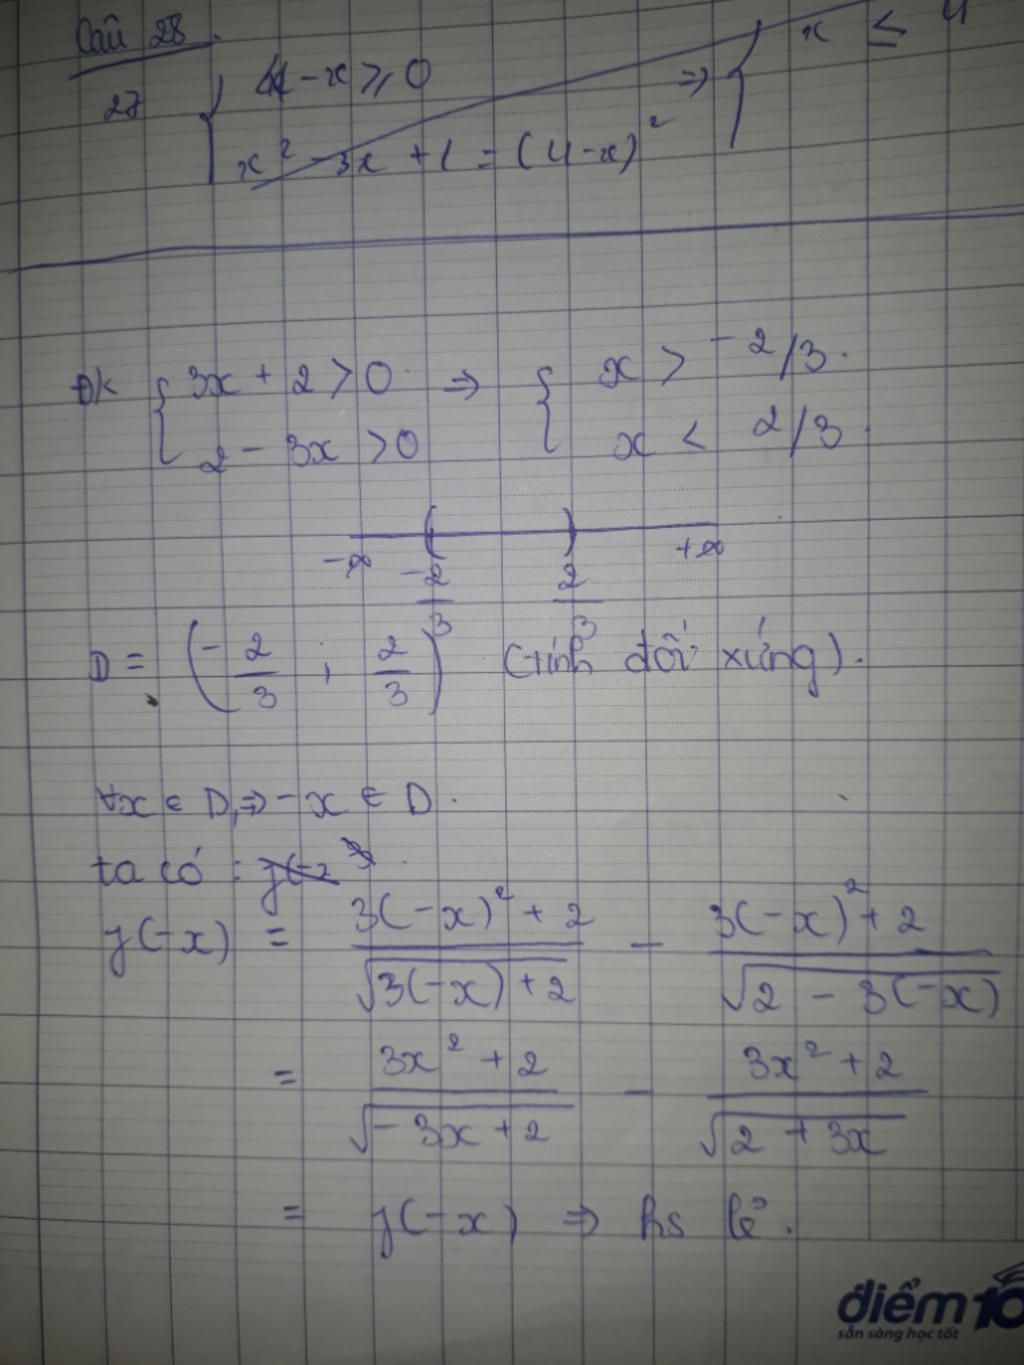 Câu 28.
27 { 4 - x ≥ 0 ⇒ { x ≤ 4
x² - 3x + 1 = (4-x)²
ĐK { 3x + 2 > 0 ⇒ { x > -2/3.
2 - 3x > 0 x < 2/3.
-∞ -2/3 2/3 +∞
D = (-2/3 ; 2/3) (tính đối xứng).
∀x ∈ D, ⇒ -x ∈ D.
ta có :
y(-x) = (3(-x)² + 2)/√(3(-x) + 2) - (3(-x)² + 2)/√(2 - 3(-x))
= (3x² + 2)/√(-3x + 2) - (3x² + 2)/√(2 + 3x)
= y(-x) ⇒ hs lẻ.
điểm 10
sẵn sàng học tốt